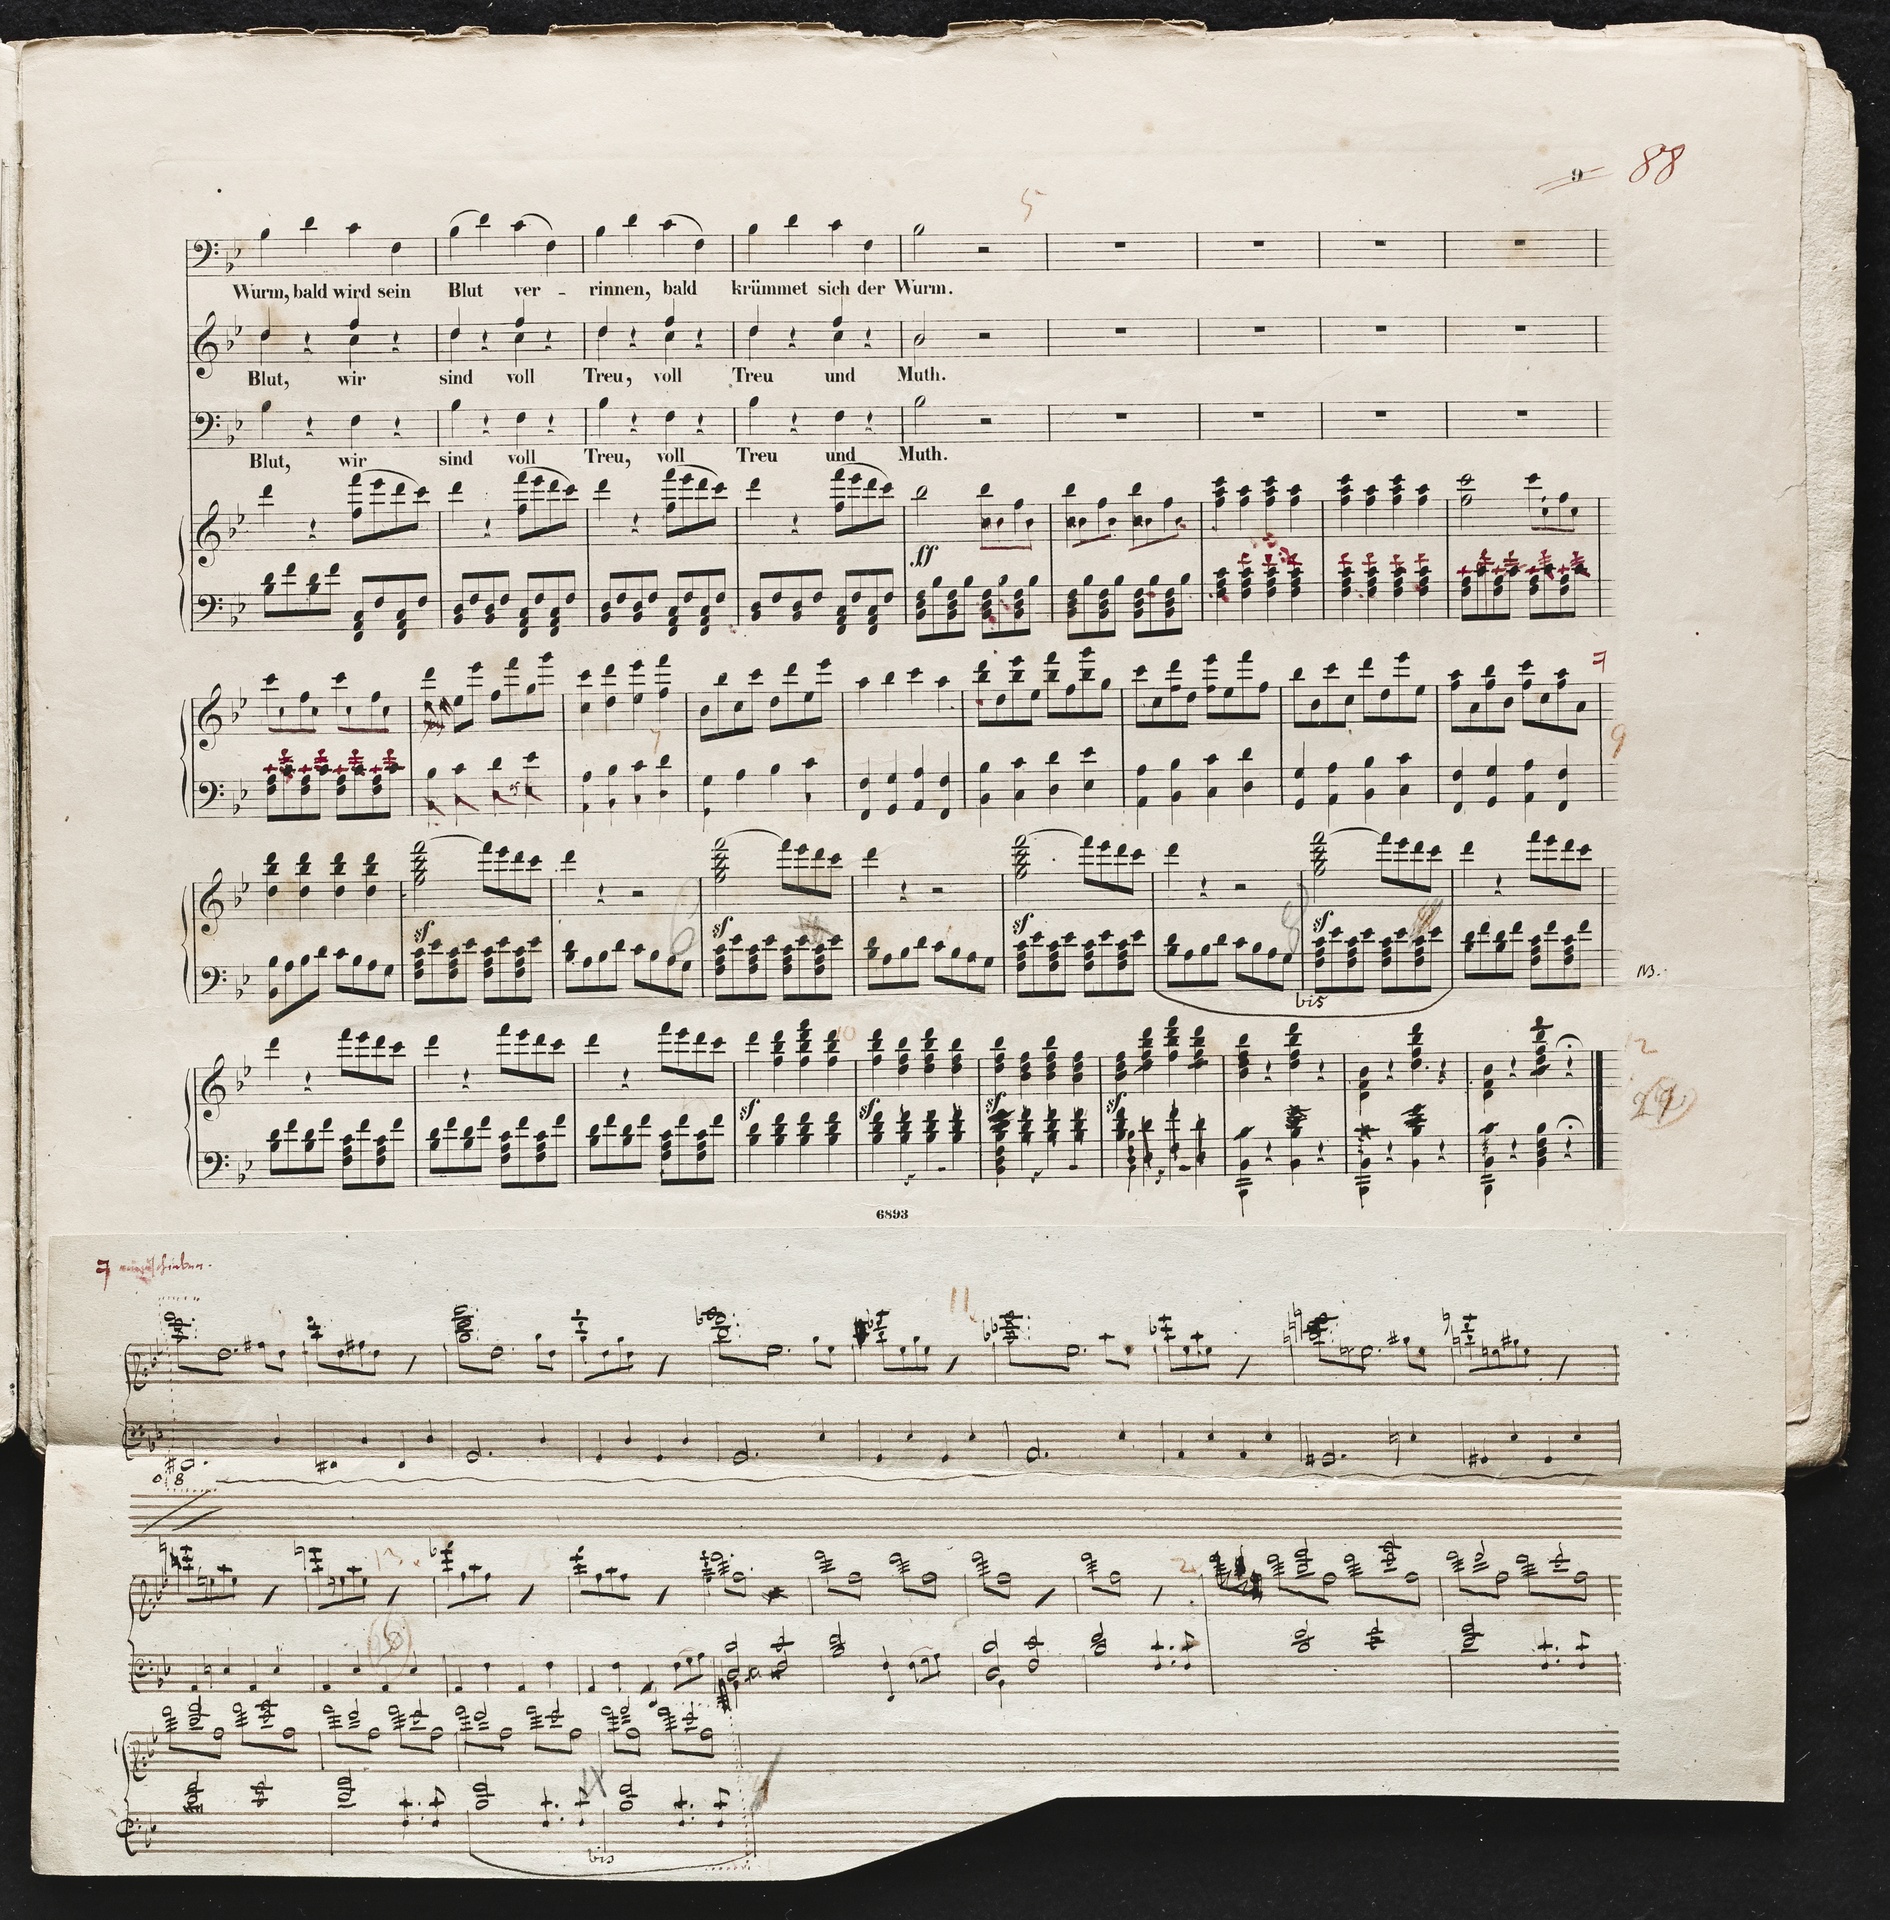 9 88
5
Wurm, bald wird sein Blut ver - rinnen, bald krümmet sich der Wurm.
Blut, wir sind voll Treu, voll Treu und Muth.
Blut, wir sind voll Treu, voll Treu und Muth.
ff
7
9
6
sf sf sf sf
bis
NB.
10
12
sf sf sf sf
6893
11
8
13.
2
bis